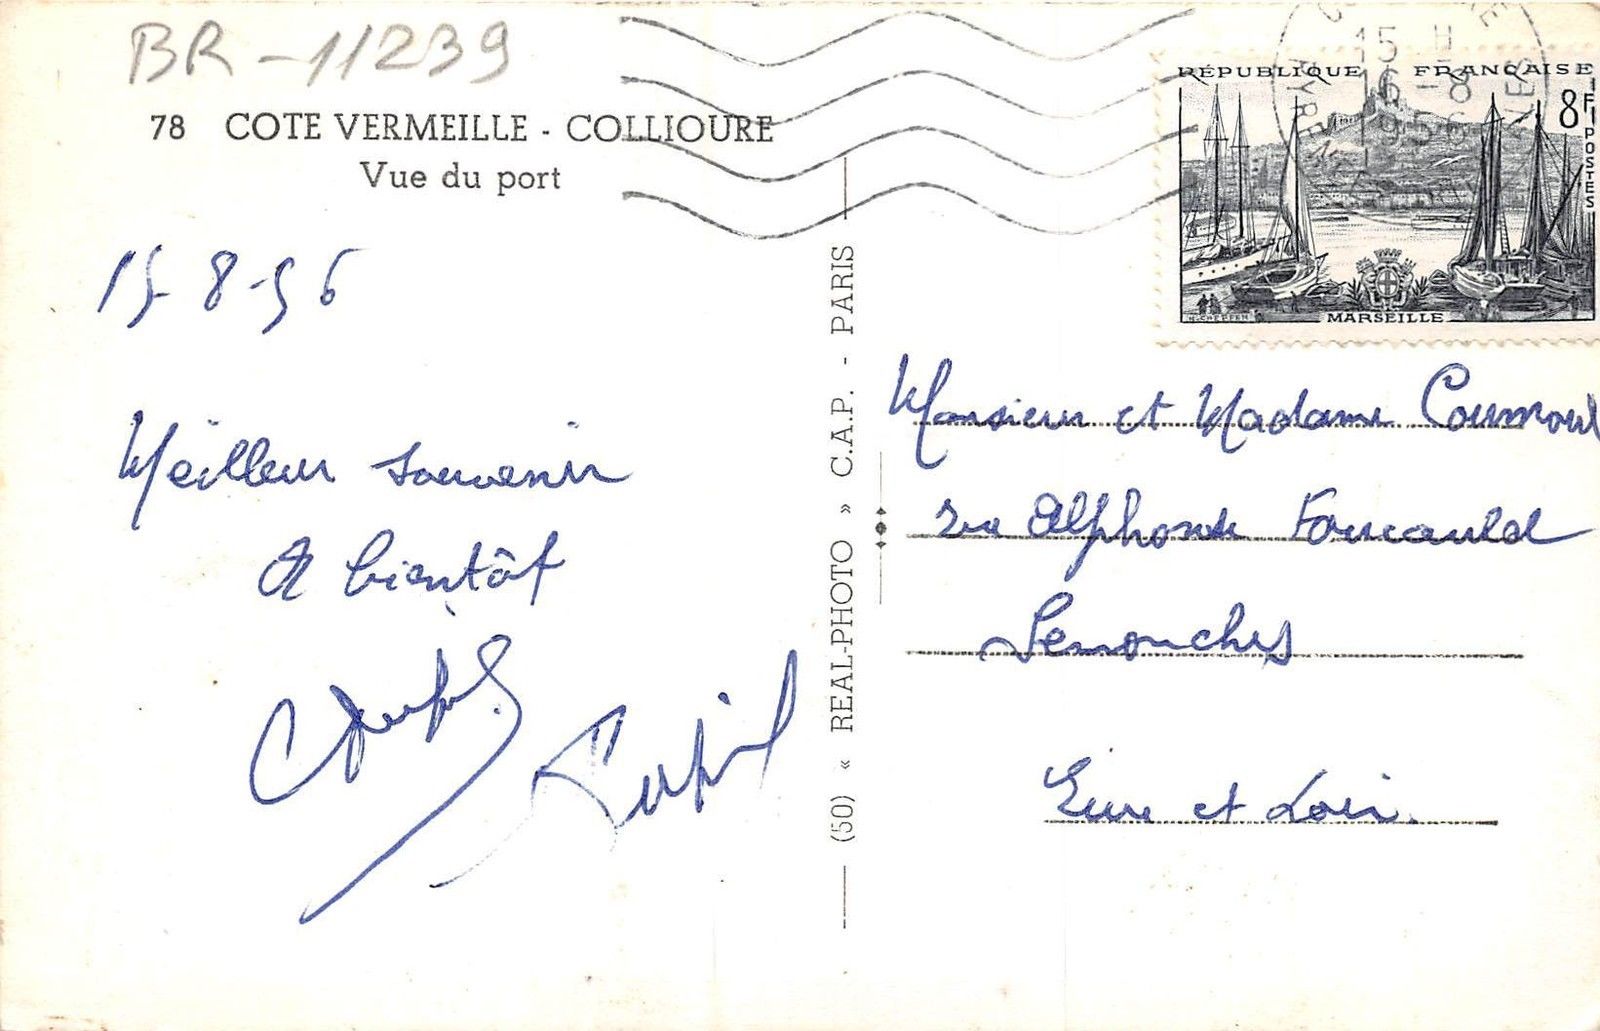 BR-11239
78 COTE VERMEILLE - COLLIOURE
Vue du port
15-8-56
Meilleur souvenir
A bientôt
(50) « REAL-PHOTO » C.A.P. - PARIS
15 H
16 - 8
RÉPUBLIQUE FRANÇAISE
8F
POSTES
MARSEILLE
Monsieur et Madame
rue Alphonse Foucauld
Senonches
Eure et Loir.